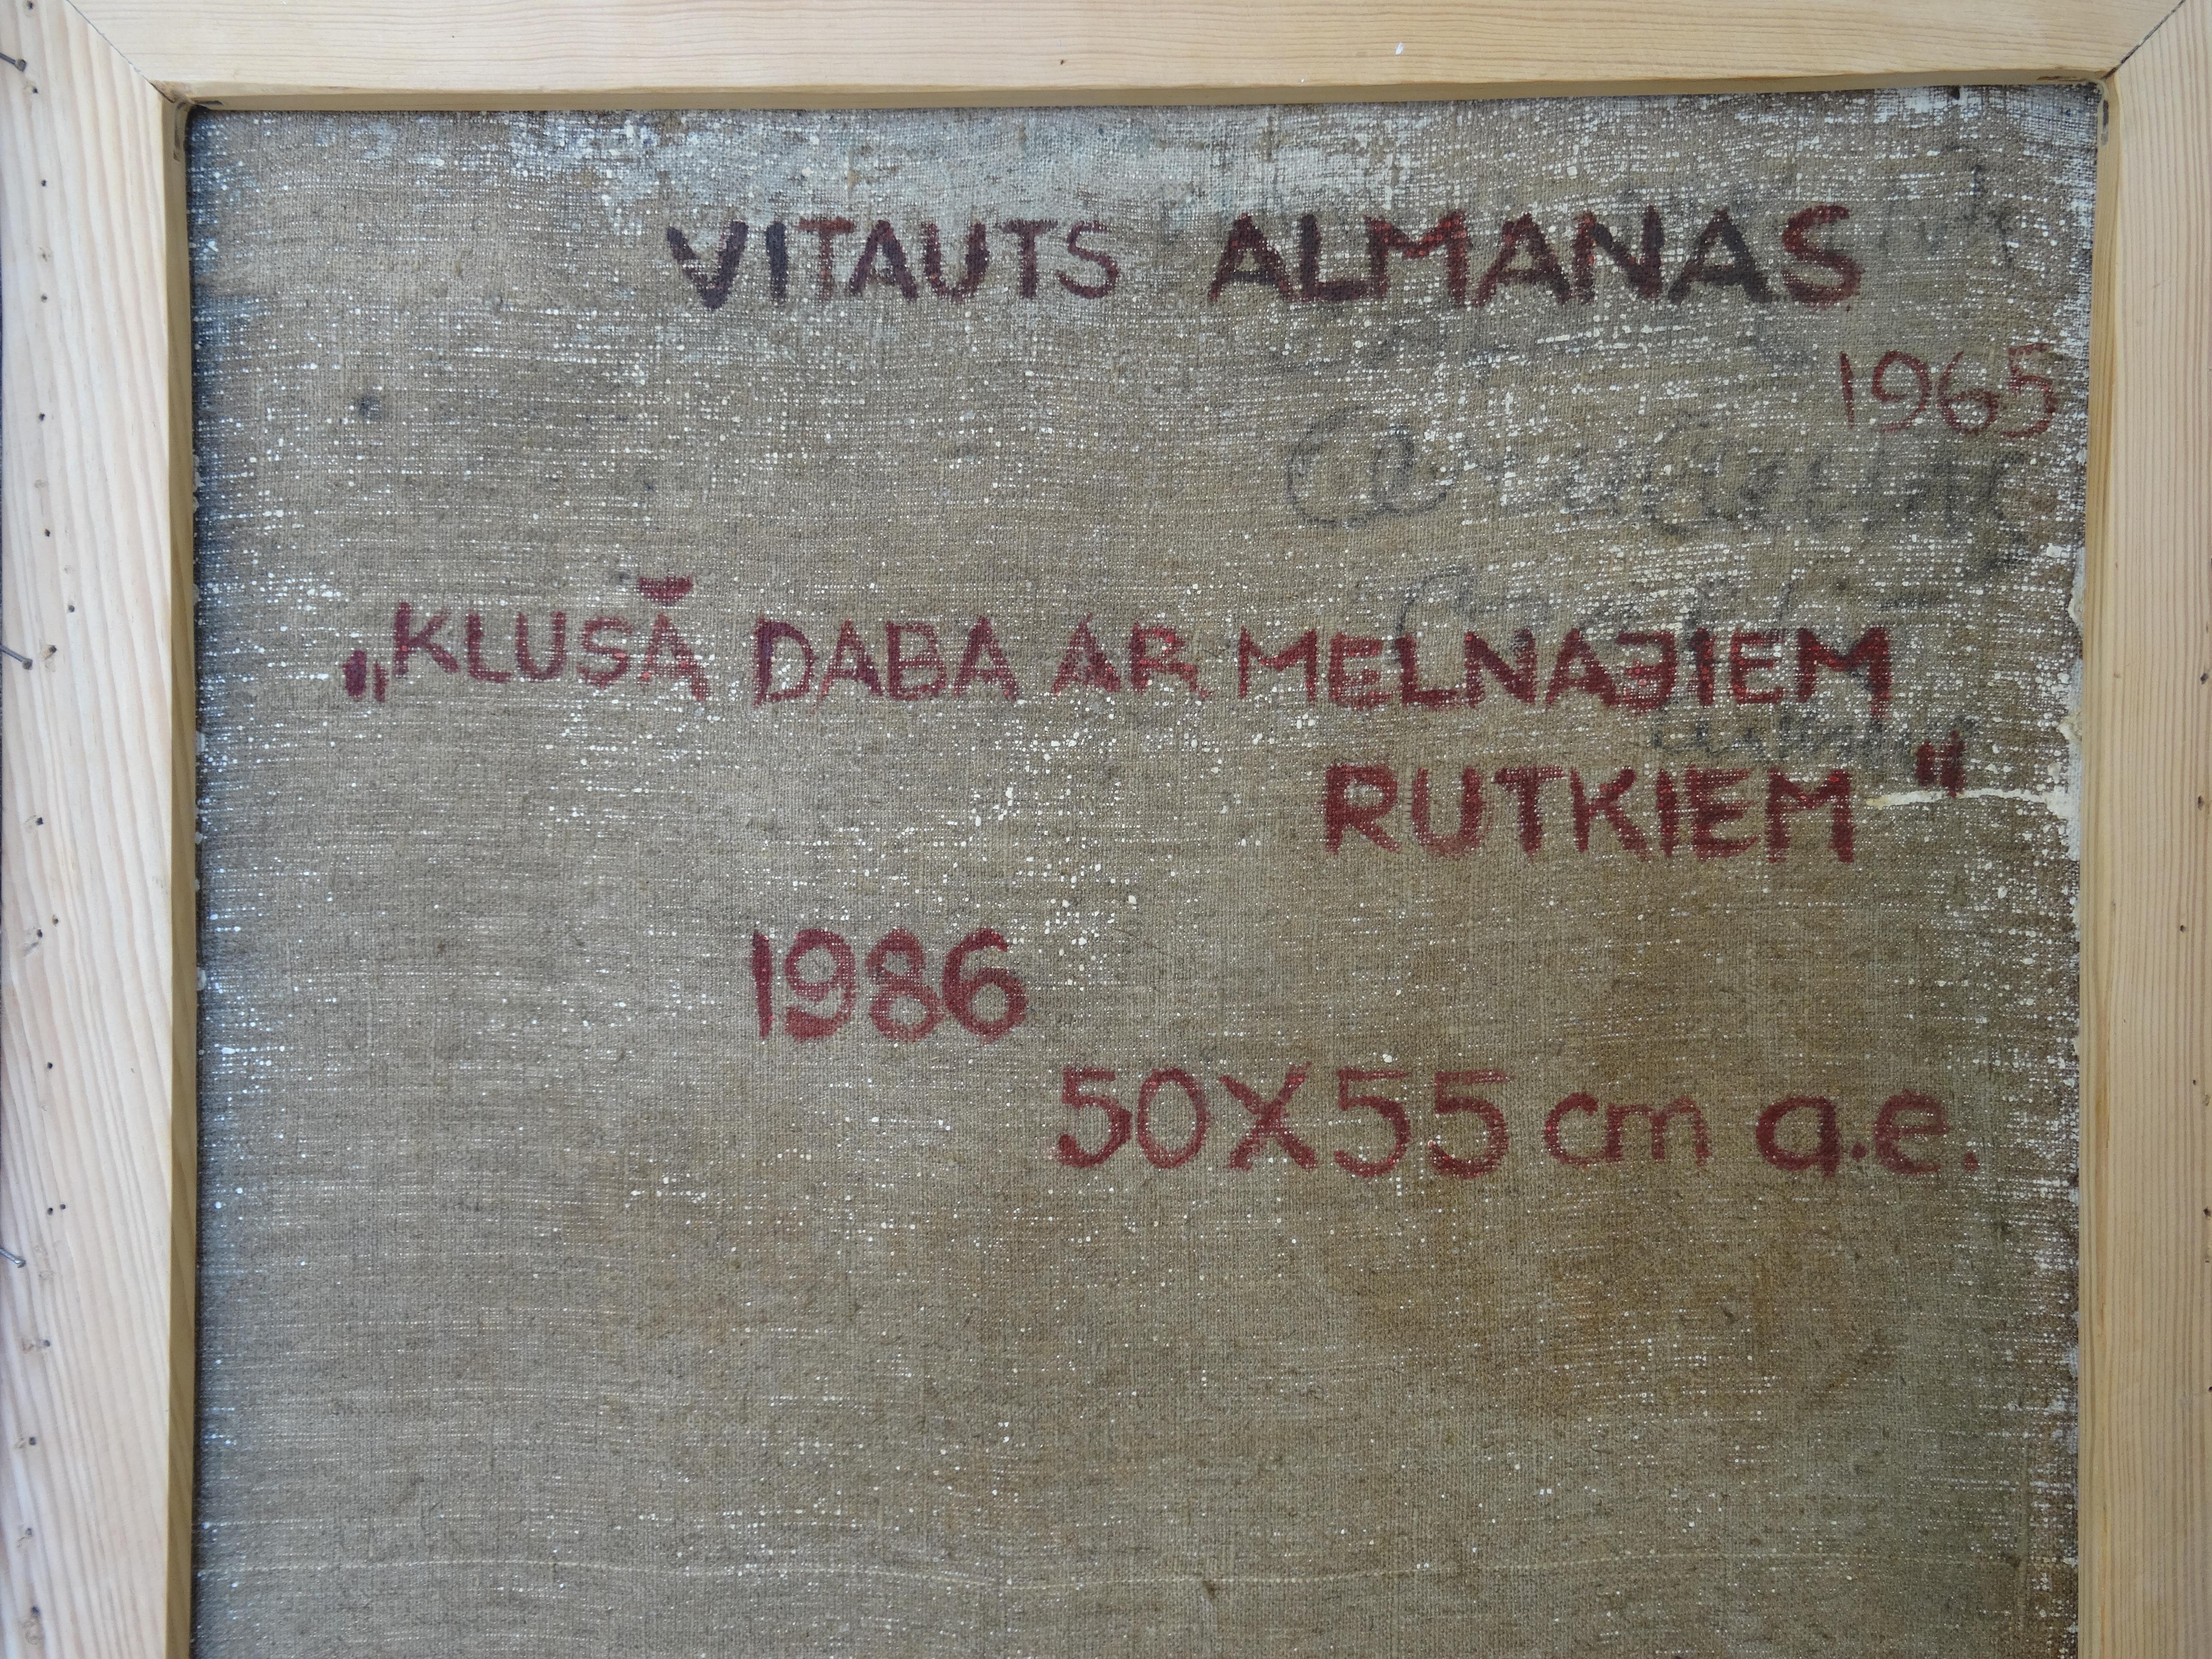 VITAUTS ALMANAS
1965
„KLUSĀ DABA AR MELNAJIEM
RUTKIEM"
1986
50X55 cm a.e.